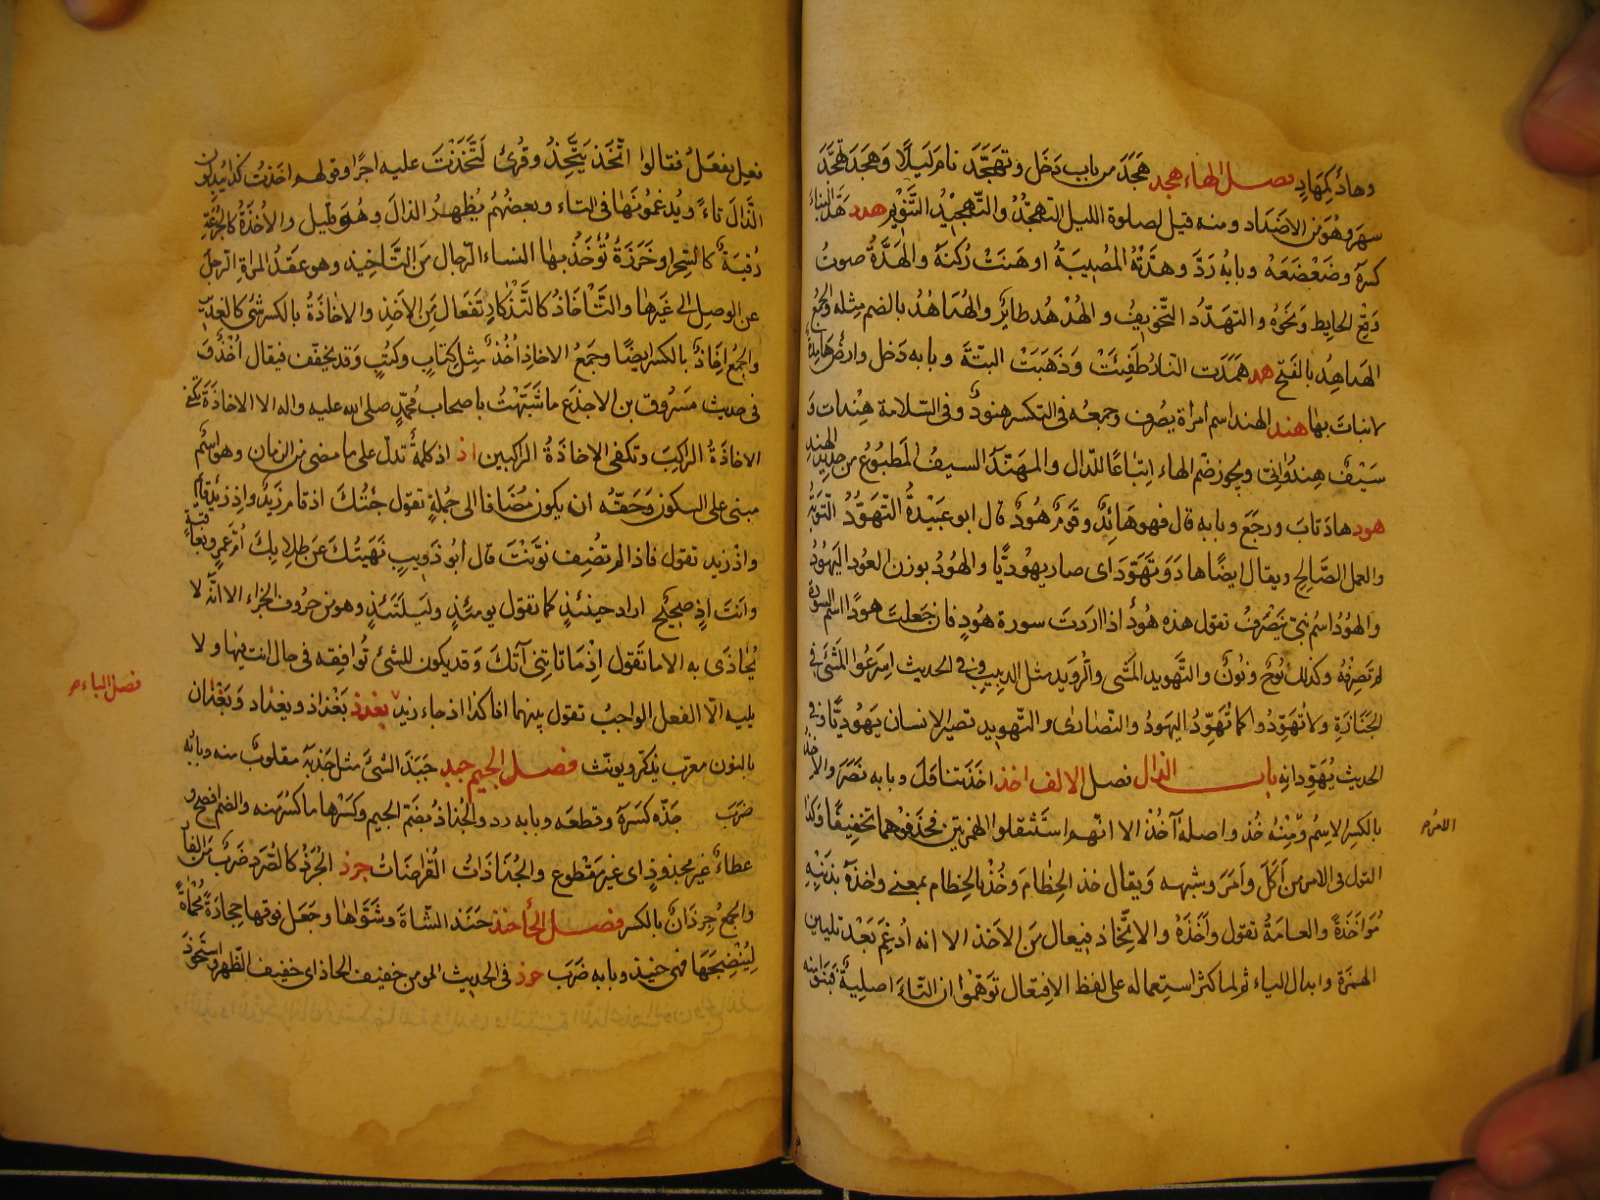 وهادٌ كمِهادٍ فصـل الهاء هجد هَجَدَ من باب دَخَل وتهَجَّدَ نامَ لَيلًا وهَجَدَ وتهجَّدَ
سهر وهُوَ من الاضداد ومنه قيل لصلوة الليل التهجُّدُ والتَّهجيدُ التَّنويم هدد هَدَّ البناءَ
كسرَهُ وضَعْضَعَهُ وبابُه رَدَّ وهَدَّتْهُ المُصيبَةُ اوهَنَتْ رُكنَهُ والهَدَّةُ صوتُ
وَقعِ الحايِط ونَحوُه والتهَدّدُ التَّخويفُ والهُدهُد طائِرٌ والهُداهُدُ بالضم مِثله والجمعُ
الهَداهِدُ بالفَتح همد هَمَدَت النارُ طَفِئَتْ وذَهَبَتْ البتّةَ وبابه دَخل وارضٌ هَامِدةٌ
لا نباتَ بها هند الهند اسم امراة يصرف وجمعُه في التكسر هنودٌ وفي السّلامة هِندات و
سَيْفٌ هِندُوانىٌّ ويجوز ضم الهاء اِتباعًا للدّال والمهنَّدُ السيفُ المَطبُوعُ من حديدِ الهندِ
هود هادَ تابَ ورجَعَ وبابه قال فهو هَائِدٌ وقَومٌ هُودٌ قال ابو عبَيْدةُ التَّهوُّدُ التّوبَةُ
والعمل الصَّالِح ويقال ايضًا هادَ وَتهَوَّدَ اى صار يهُوديًّا والهُودُ بوزن العود اليَهُودُ
والهُودُ اسمُ نبىّ يَنصَرفُ تقول هذه هُودٌ اذا اردت سورة هُودٍ فان جَعلتَ هودًا اسم السورة
لم تَصرِفهُ وكذلك نُوحٌ ونُونٌ والتَّهويد المَشى والرُّويد مثل الدبيبِ وفى الحديث اسرعُوا المَشىَ فى
الجَنازةِ ولا تهَوِّدُوا كما تُهَوِّدُ اليَهودُ والنّصارى والتّهويد تصيير الانسان يَهُوديًّا وفى
الحديث يُهَوِّدانِهِ بابـــ الذال فصل الالف اخذ اخذَ تناوَلَ وبابه نصَرَ والاِخذُ
بالكسر الاِسْم ومِنْهُ خُذ واصلهُ أأخُذ الا انّهم استَثقلوا الهَمزتين فحذفوهما تخفيفًا وكذا
الامرم
القول فى الامر من أكَلَ وأمَرَ وشبهه ويقال خذ الخِطامَ وخُذ بالخِطام بمعنى واخذَهُ بذنبِه
مُؤاخَذَةً والعامّةُ تقول واخَذَهُ والاتِّخاذ افتِعال مِنَ الاخذ الا انه أُدغِمَ بَعْد تليين
الهمزة وابدال الياء ثم لما كثر استعماله على لفظ الافتعال توَهَّمُوا ان التَّاءَ اصليةٌ فبَنَوا منه
فعِل يَفعَلُ فقالوا اتَّخَذ يَتَّخِذُ وقُرئ لَتَّخَذْتَ عليه اجرًا وقولهم اخذتُ كذا يُبدِلون
الذّالَ تاءً ويُدغمونها فى التاء وبعضُهم يُظهِرُ الذالَ وهُو قليل والأُخذَةُ كالجُرعَة
رُقيَةٌ كالسّحر او خَرَزَةٌ تُؤخِّذُ بها النساء الرّجال مِنَ التَّاخِيذ وهو عقدُ المراةِ الرجلَ
عن الوصل الى غَيرها والتَّأخاذ كالتَّذكارِ تَفعَال مِنَ الاَخذِ والاِخاذَةُ بالكسر شئ كالغدير
والجمعُ اِخاذٌ بالكسر ايضًا وجَمعُ الاخاذِ أُخُذٌ مِثل كتابٍ وكتُبٍ وقد يخفّف فيقال اُخْذٌ و
فى حديث مَسْرُوق بن الاجدَع ما شَبَّهتُ باصحاب مُحمّدٍ صلى الله عليه واله الا الاخاذَةَ تكفى
الاخاذَةُ الراكِبَ وتكفى الاخاذَةُ الراكِبين اذ اذ كلمةٌ تدلّ على ما مضى من الزمان وهو اسمٌ
مبنى على السكون وحَقّهُ ان يكون مُضافا الى جُملةٍ تقول جئتُكَ اذ قام زَيدٌ واِذ زيدٌ قائمٌ
واذ زيد تقول فاذا لم تُضِف نوَّنْتَ قال ابو ذويبٍ نَهَيتُكَ عَن طِلابِكَ اُمَّ عَمرٍو بعاقبةٍ
وانتَ اذٍ صحِيحُ اراد حينئذٍ كما تقول يومئذٍ وليلتئذٍ وهو من حروف الجزاء الا انَّه لا
يُجازَى به الا ما تقول اِذْمَا تاتِنى آتكَ وقد يكون للشئ تُوافِقه فى حال انت فيها ولا
يليه الّا الفعل الواجبُ تقول بينما انا كذا اذ جاء زيدٌ بغدذ بَغْدَاذ وبغداد وبَغْدَان
فصل الباء م
بالنون معرب يذكّر ويونّث فصـل الجيم جبذ جبَذَ الشئَ مثل جَذبَهُ مقلوبٌ منه وبابُه
ضرَبَ جَذّهُ كسَرَهُ وقطعَه وبابه رد والجُذاذُ بضَمّ الجيم وكسْرها ما كُسِّرَ منه والضم افصح و
عطاءً غيرَ مجذوذٍ اى غير مَقْطوع والجُذَاذَاتُ القُراضاتُ جرذ الجُرَذُ كالصُّرَد ضَربٌ من الفأر
والجمعُ جِرذانٌ بالكسر فصـل الحاء حنذ حَنَذ الشّاةَ وشوَاها وجَعَل فوقها حِجارَةً مُحماةً
ليُنضِجَهَا فهى حنيذ وبابه ضَربَ حوذ فى الحديث المومن خفيف الحاذ اى خفيف الظّهر واستَحوَذَ